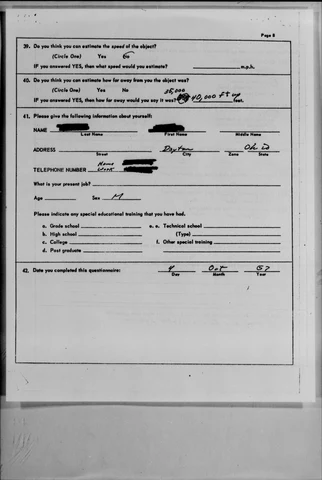 Page 8
39. Do you think you can estimate the speed of the object?
(Circle One) Yes No
IF you answered YES, then what speed would you estimate? m.p.h.
40. Do you think you can estimate how far away from you the object was?
(Circle One) Yes No 25,000
IF you answered YES, then how far away would you say it was? 40,000 ft up feet.
41. Please give the following information about yourself:
NAME
Last Name First Name Middle Name
ADDRESS Dayton Ohio
Street City Zone State
Home
TELEPHONE NUMBER Work
What is your present job?
Age Sex M
Please indicate any special educational training that you have had.
a. Grade school e. Technical school
b. High school (Type)
c. College f. Other special training
d. Post graduate
42. Date you completed this questionnaire: 4 Oct 67
Day Month Year